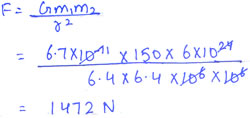 F = Gm₁m₂ / r²
= 6.7×10⁻¹¹ × 150 × 6×10²⁴ / 6.4 × 6.4 × 10⁶ × 10⁶
= 1472 N